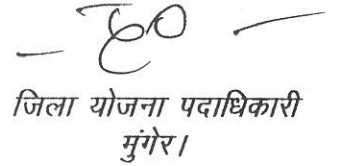 ह०
जिला योजना पदाधिकारी
मुंगेर।